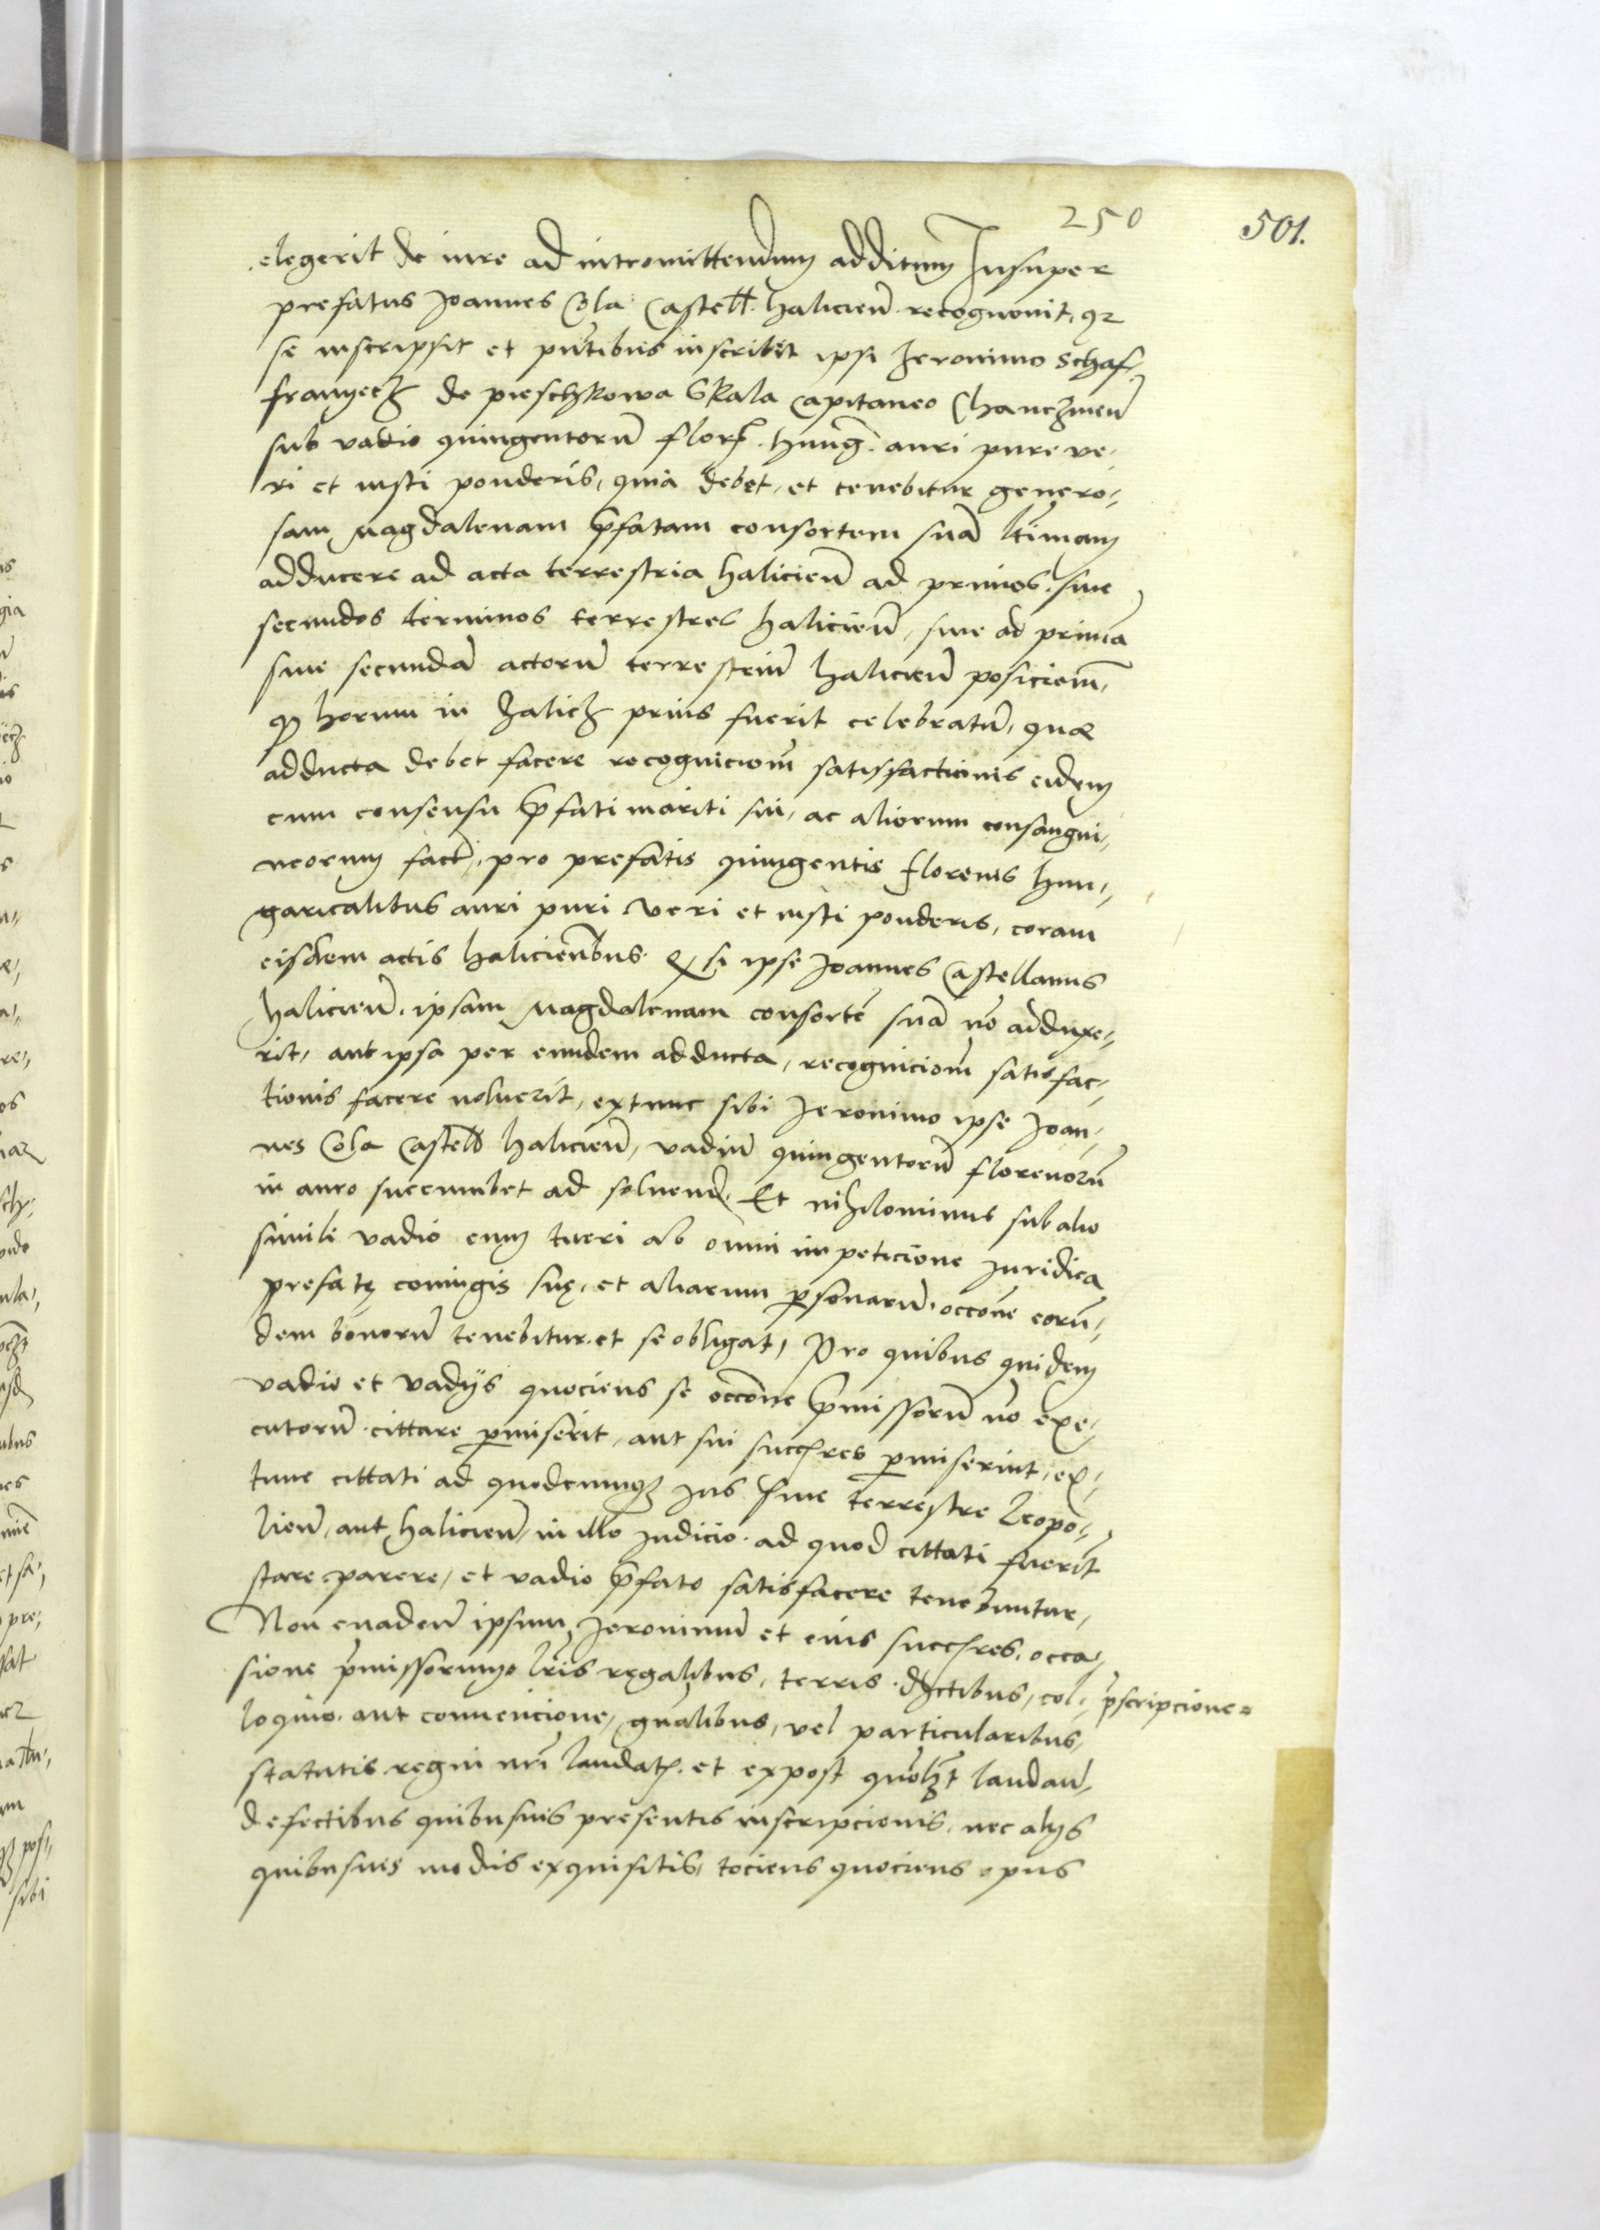 250
501.
elegerit de iure ad intromittendum additum Insuper
prefatus Joannes Cola Castell. halicien̄. recognovit, q2
se inscripsit et pn̄tibus inscribit ipsi Jeronimo Schaf,
franyecz de pieschkowa Skala Capitaneo Chanczinen̄
sub vadio quingentorū flor. hunḡ. auri pure ve,
ri et iusti ponderis, quia debet, et tenebitur genero,
sam Magdalenam p̄fatam consortem suā ltimam
adducere ad acta terrestria halicien̄ ad primos, sive
secundos terminos terrestres halicien̄, sive ad primā
sive secundā actorū terrestriū halicien̄ posicionē,
qd horum in Halicz prius fuerit celebratū, quæ
adducta debet facere recognicionē satisfactionis eidem
cum consensu p̄fati mariti sui, ac aliorum consangui,
neorum fact, pro prefatis quingentis florenis hun,
garicalibus auri puri veri et iusti ponderis, coram
eisdem actis haliciēn̄bus. & si ipse Joannes Castellanus
halicien̄. ipsam Magdalenam consortē suā nō adduxe,
rit, aut ipsa per eundem adducta, recognicionē satisfac,
tionis facere noluerit, extunc sibi Jeronimo ipse Joan,
nes Cola Castell halicien̄, vadiū quingentorū florenorū
in auro succumbet ad solvend. Et nihilominus sub alio
simili vadio eum tueri ab omni impeticione iuridica
prefatę coniugis suę, et aliarum p̱sonarū, occōne eorū,
dem bonorū tenebitur et se obligat, Pro quibus quidem
vadio et vadijs quociens se occōne p̄missorū nō exe,
cutorū cittare p̱miserit, aut sui succres p̱miserint, ex,
tunc cittati ad quodcunq3 ius sive terrestre Leopo,
lien̄, aut halicien̄, in illo iudicio ad quod cittati fuerīt
stare parere, et vadio p̄fato satisfacere tenebuntur,
Non evaden̄ ipsum Jeronimū et eius succres, occa,
sione p̄missorum lr̄is regalibus, terris dictibus, col, p̄scripcione
loquio aut convencione, gn̄alibus, vel particularibus,
statutis regni nrī laudat. et expost quōlt laudan̄,
defectibus quibusvis presentis inscripcionis, nec alijs
quibusvis modis exquisitis, tociens quociens opus